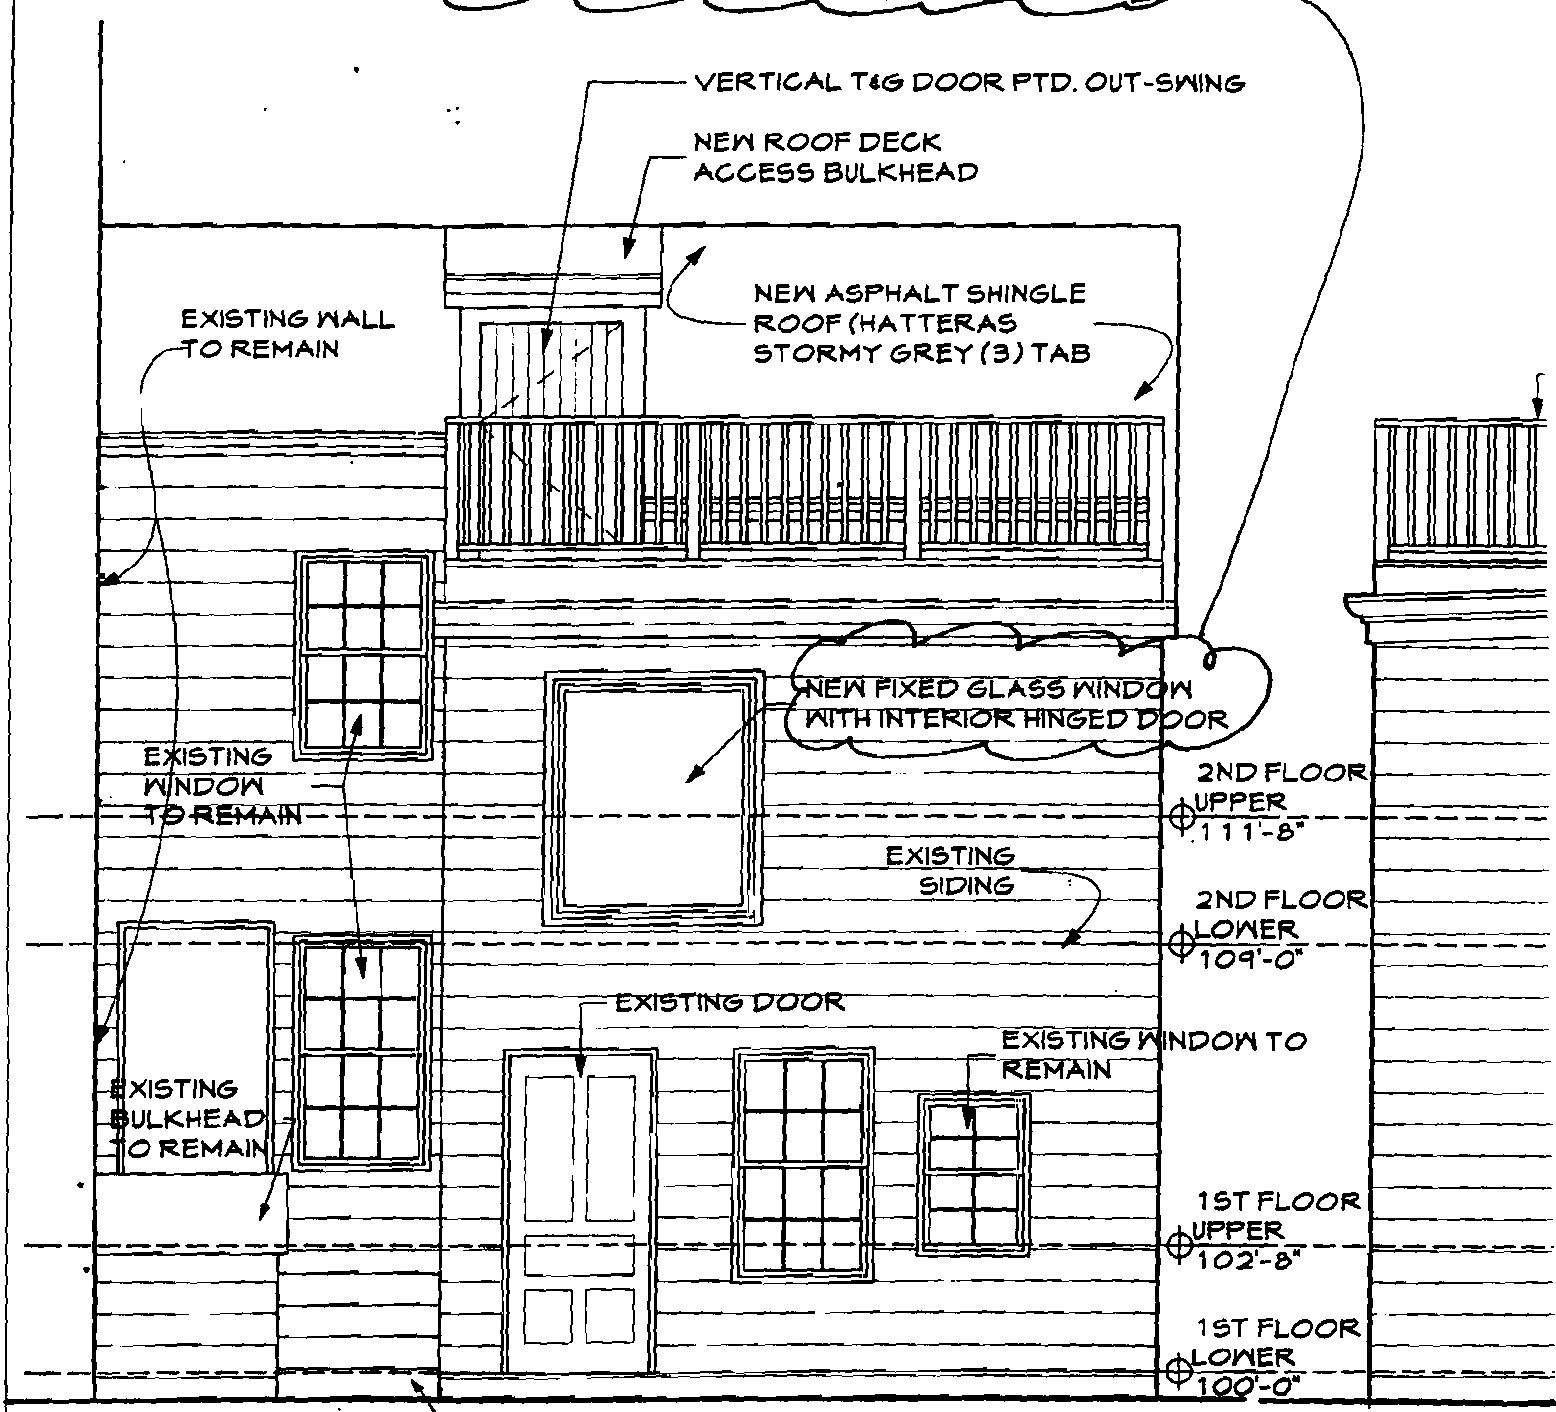 VERTICAL T&G DOOR PTD. OUT-SWING
NEW ROOF DECK
ACCESS BULKHEAD
NEW ASPHALT SHINGLE
ROOF (HATTERAS
STORMY GREY (3) TAB
EXISTING WALL
TO REMAIN
NEW FIXED GLASS WINDOW
WITH INTERIOR HINGED DOOR
EXISTING
WINDOW
TO REMAIN
2ND FLOOR
UPPER
111'-8"
EXISTING
SIDING
2ND FLOOR
LOWER
109'-0"
EXISTING DOOR
EXISTING WINDOW TO
REMAIN
EXISTING
BULKHEAD
TO REMAIN
1ST FLOOR
UPPER
102'-8"
1ST FLOOR
LOWER
100'-0"